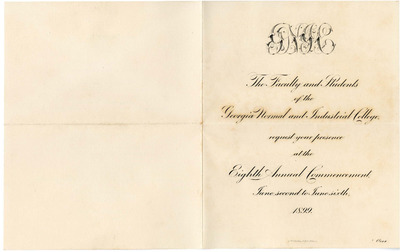 GNIC
The Faculty and Students
of the
Georgia Normal and Industrial College,
request your presence
at the
Eighth Annual Commencement,
June second to June sixth,
1899.